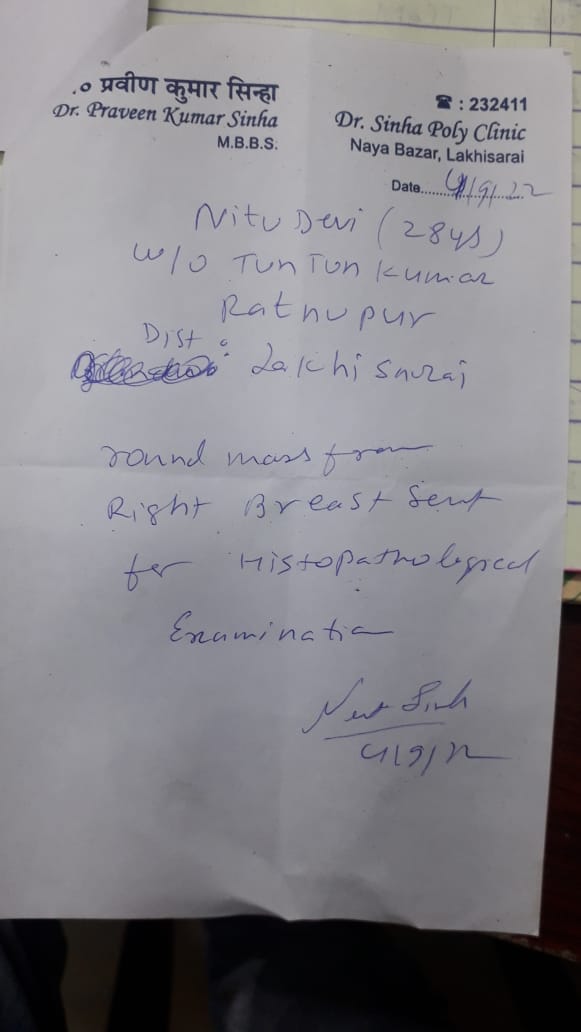 .० प्रवीण कुमार सिन्हा
Dr. Praveen Kumar Sinha
M.B.B.S.
☎ : 232411
Dr. Sinha Poly Clinic
Naya Bazar, Lakhisarai
Date........4/9/22
Nitu Devi (28ys)
w/o Tun Tun Kumar
Ratnupur
Dist :
Lakhi Sarai
round mass from
Right Breast Sent
for Histopathological
Examination
4/9/22